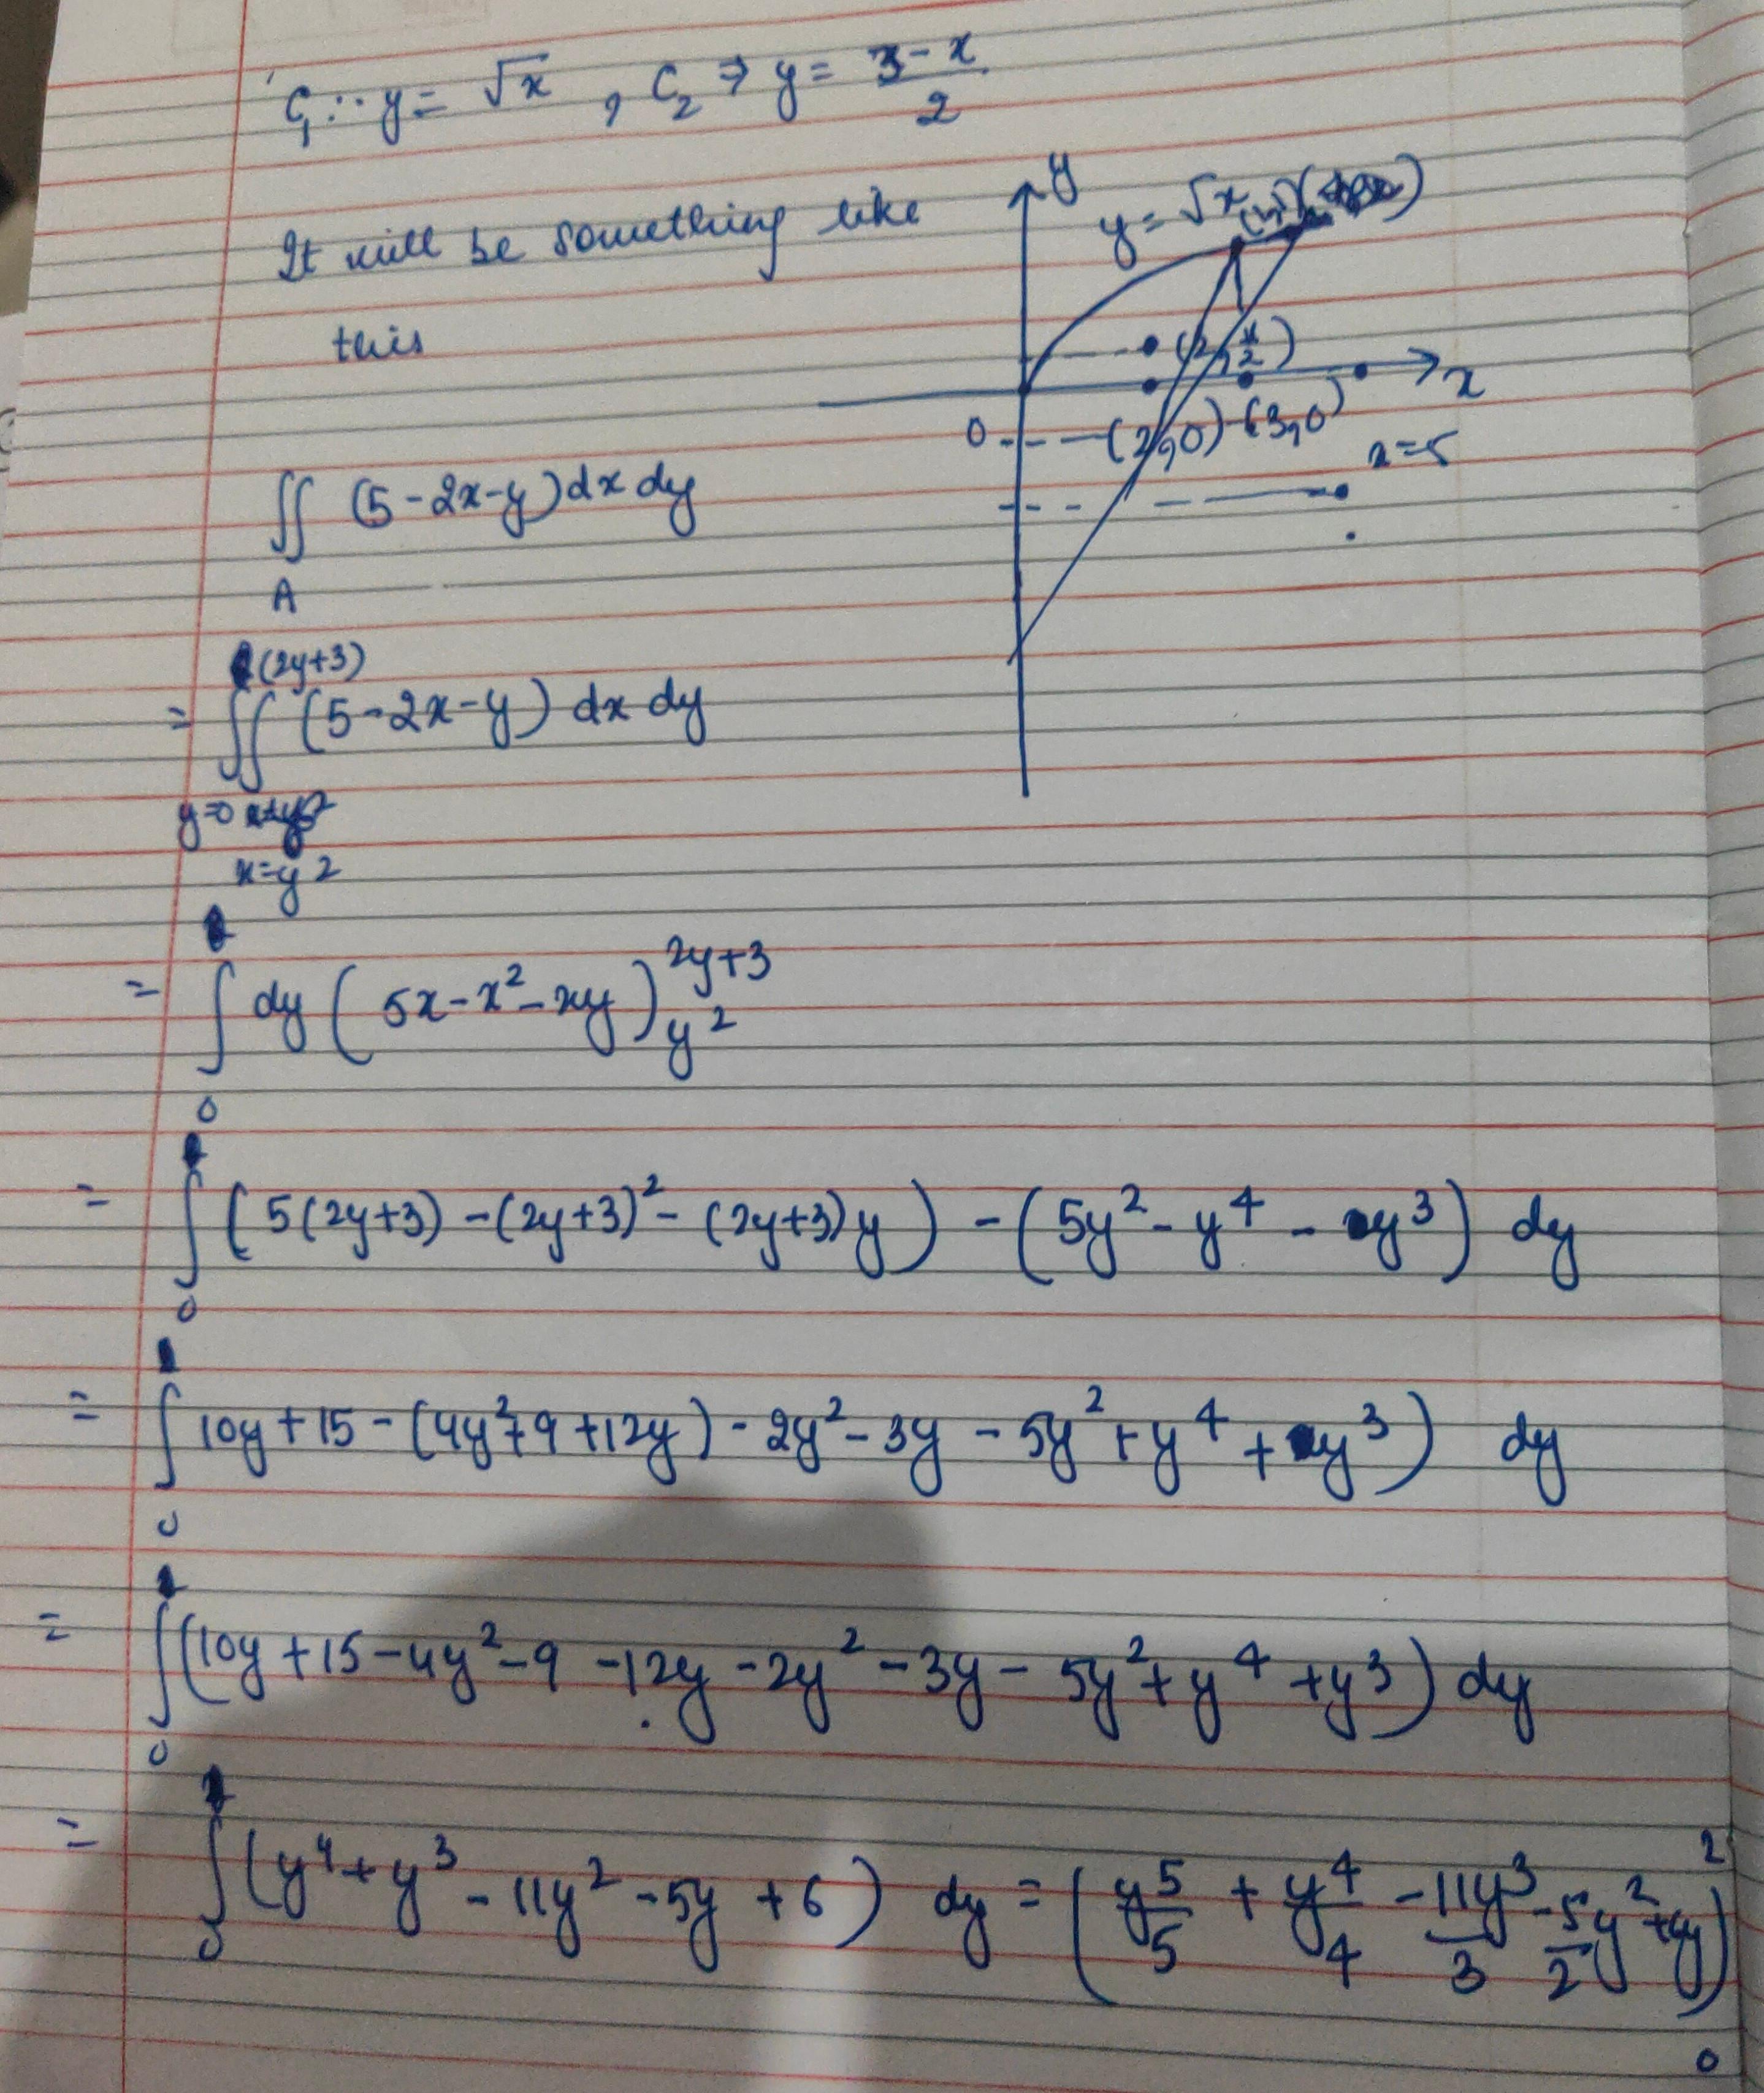 C₁ : y = √x , C₂ ⇒ y = (3-x)/2
It will be something like
this
y
y = √x
(2, x/2)
x
0
(2,0) (3,0)
x=5
∬ (5-2x-y) dx dy
A
(2y+3)
= ∬ (5-2x-y) dx dy
y=0
x=y²
= ∫ dy (5x - x² - xy) 2y+3 y²
0
= ∫ (5(2y+3) - (2y+3)² - (2y+3)y) - (5y² - y⁴ - y³) dy
0
= ∫ 10y + 15 - (4y² + 9 + 12y) - 2y² - 3y - 5y² + y⁴ + y³) dy
0
= ∫ (10y + 15 - 4y² - 9 - 12y - 2y² - 3y - 5y² + y⁴ + y³) dy
0
= ∫ (y⁴ + y³ - 11y² - 5y + 6) dy = (y⁵/5 + y⁴/4 - 11y³/3 - 5/2 y² + 6y) 2
0 0